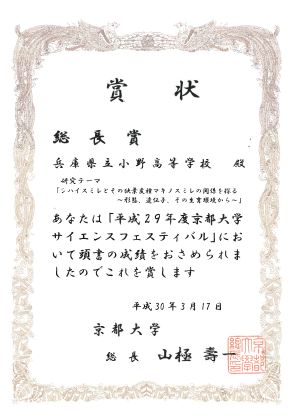 賞状
総長賞
兵庫県立小野高等学校 殿
研究テーマ
「シハイスミレとその狭葉変種マキノスミレの関係を探る
～形態、遺伝子、その生育環境から～」
あなたは「平成29年度京都大学
サイエンスフェスティバル」にお
いて頭書の成績をおさめられま
したのでこれを賞します
平成30年3月17日
京都大学
総長 山極壽一